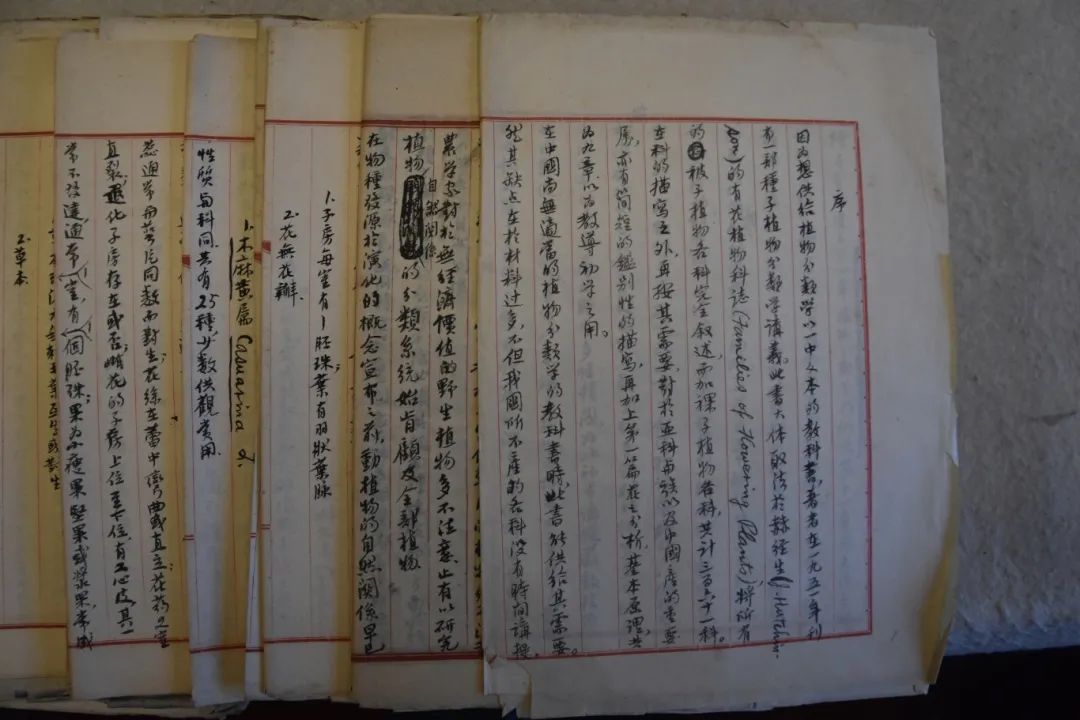 序
因为想供给植物分类学以一中文本的教科書,著者在一九五一年刊
布一部種子植物分類学講義。此書大体取法於赫經生(J. Hutchin-
son)的有花植物科誌(Families of Flowering Plants)将所有
的被子植物各科完全叙述,而加裸子植物各科,共計三百六十一科。
在科的描寫之外,再按其需要,對於亚科与族以及中國産的重要
属,亦有简短的鑑别性的描寫,再加上第一篇花之分析,基本原理,共
为九章以为教導初学之用。
在中國尚無適當的植物分類学的教科書時,此書能供給其需要。
然其缺点在於材料过多,不但我國所不産的各科没有時間講授,
農学家對於無經濟價值的野生植物多不注意,止有以研究
植物自然関係的分類系統始肯顧及全部植物
在物種發源於演化的概念宣布之前,動植物的自然関係早已
1.子房每室有1胚珠;葉有羽狀葉脉
2.花無花瓣
1.木麻黄属 Casuarina L.
性質与科同。共有25種,少数供觀賞用。
蕊通常与萼片同数而對生;花絲在蕾中彎曲或直立;花药2室
直裂;退化子房存在或否;雌花的子房上位至下位,有2心皮,其一
常不發達,通常1室,有1個胚珠;果为小瘦果堅果或漿果,常成
2.草本